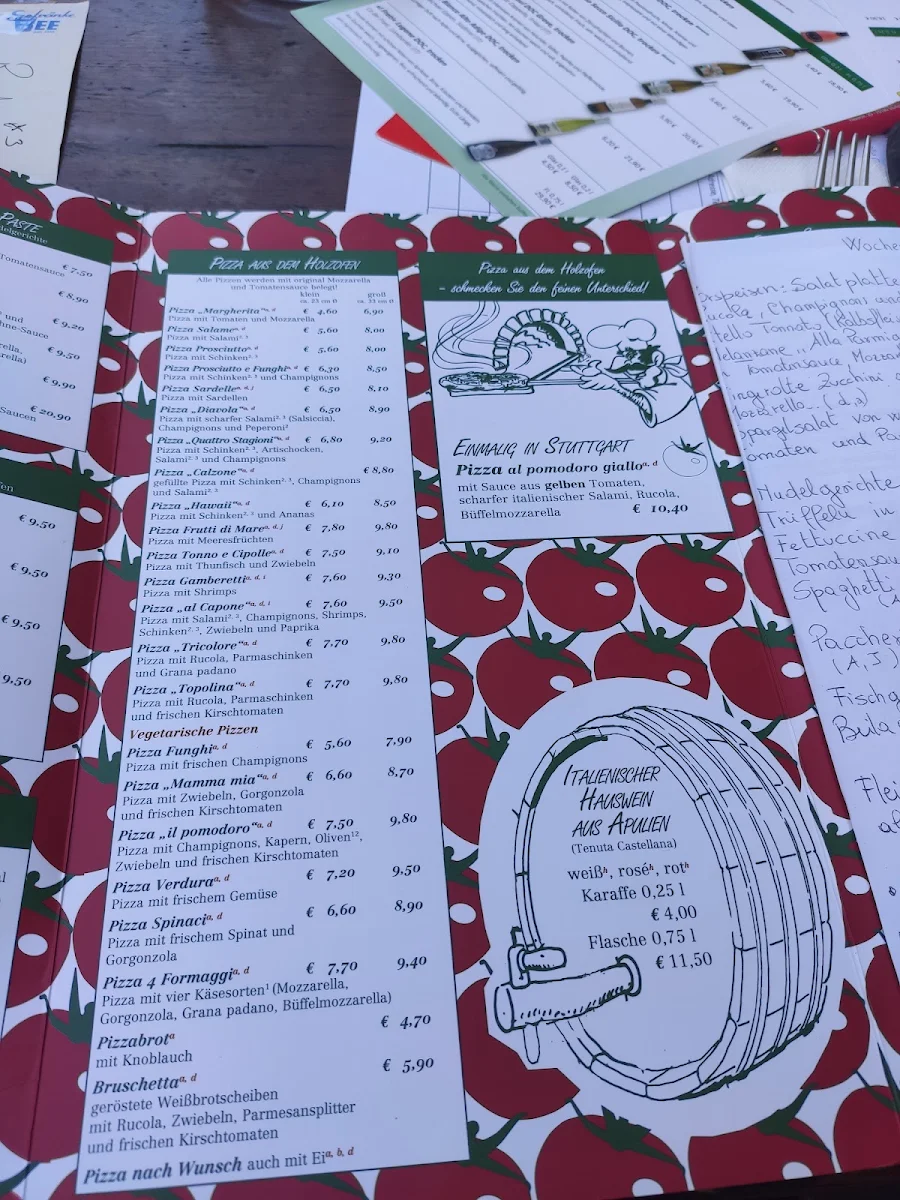 EE
PASTE
delgerichte
Tomatensauce
€ 7,50
€ 8,90
und
hne-Sauce
€ 9,20
€ 9,50
€ 9,90
Saucen
€ 20,90
€ 9,50
€ 9,50
€ 9,50
9,50
PIZZA AUS DEM HOLZOFEN
Alle Pizzen werden mit original Mozzarella
und Tomatensauce belegt!
klein groß
ca. 23 cm Ø ca. 33 cm Ø
Pizza „Margherita“a, d € 4,60 6,90
Pizza mit Tomaten und Mozzarella
Pizza Salamea, d € 5,60 8,00
Pizza mit Salami2, 3
Pizza Prosciuttoa, d € 5,60 8,00
Pizza mit Schinken2, 3
Pizza Prosciutto e Funghia, d € 6,30 8,50
Pizza mit Schinken2, 3 und Champignons
Pizza Sardellea, d, i € 6,50 8,10
Pizza mit Sardellen
Pizza „Diavola“a, d € 6,50 8,90
Pizza mit scharfer Salami2, 3 (Salsiccia),
Champignons und Peperoni2
Pizza „Quattro Stagioni“a, d € 6,80 9,20
Pizza mit Schinken2, 3, Artischocken,
Salami2, 3 und Champignons
Pizza „Calzone“a, d € 8,80
gefüllte Pizza mit Schinken2, 3, Champignons
und Salami2, 3
Pizza „Hawaii“a, d € 6,10 8,50
Pizza mit Schinken2, 3 und Ananas
Pizza Frutti di Marea, d, j € 7,80 9,80
Pizza mit Meeresfrüchten
Pizza Tonno e Cipollea, d € 7,50 9,10
Pizza mit Thunfisch und Zwiebeln
Pizza Gamberettia, d, i € 7,60 9,30
Pizza mit Shrimps
Pizza „al Capone“a, d, i € 7,60 9,50
Pizza mit Salami2, 3, Champignons, Shrimps,
Schinken2, 3, Zwiebeln und Paprika
Pizza „Tricolore“a, d € 7,70 9,80
Pizza mit Rucola, Parmaschinken
und Grana padano
Pizza „Topolina“a, d € 7,70 9,80
Pizza mit Rucola, Parmaschinken
und frischen Kirschtomaten
Vegetarische Pizzen
Pizza Funghia, d € 5,60 7,90
Pizza mit frischen Champignons
Pizza „Mamma mia“a, d € 6,60 8,70
Pizza mit Zwiebeln, Gorgonzola
und frischen Kirschtomaten
Pizza „il pomodoro“a, d € 7,50 9,80
Pizza mit Champignons, Kapern, Oliven12,
Zwiebeln und frischen Kirschtomaten
Pizza Verduraa, d € 7,20 9,50
Pizza mit frischem Gemüse
Pizza Spinacia, d € 6,60 8,90
Pizza mit frischem Spinat und
Gorgonzola
Pizza 4 Formaggia, d € 7,70 9,40
Pizza mit vier Käsesorten1 (Mozzarella,
Gorgonzola, Grana padano, Büffelmozzarella)
Pizzabrota € 4,70
mit Knoblauch
Bruschettaa, d € 5,90
geröstete Weißbrotscheiben
mit Rucola, Zwiebeln, Parmesansplitter
und frischen Kirschtomaten
Pizza nach Wunsch auch mit Eia, b, d
Pizza aus dem Holzofen
– schmecken Sie den feinen Unterschied!
EINMALIG IN STUTTGART
Pizza al pomodoro gialloa, d
mit Sauce aus gelben Tomaten,
scharfer italienischer Salami, Rucola,
Büffelmozzarella € 10,40
ITALIENISCHER
HAUSWEIN
AUS APULIEN
(Tenuta Castellana)
weißh, roséh, roth
Karaffe 0,25 l
€ 4,00
Flasche 0,75 l
€ 11,50
Woche
rspeisen: Salatplatte
ucola, Champignons und
tello Tonnato (Kalbsflei
elanzane „Alla Parmig
Tomatensauce Mozzar
ngerollte Zucchini
Mozzarella.. (d,a)
Spargelsalat von w
omaten und Pa
Nudelgerichte
Trüffeln in
Fettuccine
Tomatensau
Spaghetti
Paccher
(A, J)
Fischg
Bula
Flei